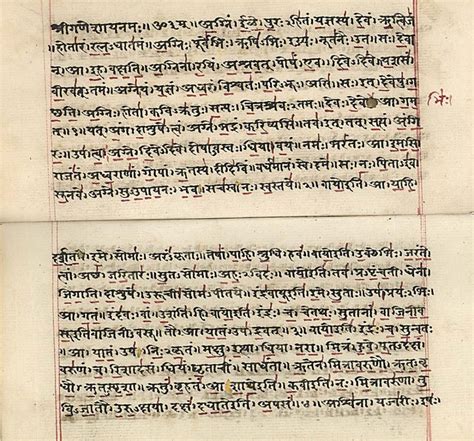 श्रीगणेशायनमः॥ॐ॥ अग्निं। ईळे। पुरःऽहितं। यज्ञस्य। देवं। ऋत्विजं
।होतारं। रत्नऽधातमं॥ अग्निः। पूर्वेभिः। ऋषिऽभिः। ईड्यः। नूतनैः। उत। सः। देवा
न्। आ। इह। वक्षति॥ अग्निना। रयिं। अश्नवत्। पोषं। एव। दिवेऽदिवे। यशसं
वीरवत्ऽतमं॥ अग्ने। यं। यज्ञं। अध्वरं। विश्वतः। परिऽभूः। असि। सः। इत्। देवेषु। ग
च्छति॥ अग्निः। होता। कविऽक्रतुः। सत्यः। चित्रश्रवःऽतमः। देवः। देवे आ। गम
भिः।
त्॥१॥ यत्। अंग। दाशुषे। त्वं। अग्ने। भद्रं। करिष्यसि। तव। इत्। तत्। सत्यं। अंगि
रः॥ उप। त्वा। अग्ने। दिवेऽदिवे। दोषाऽवस्तः। धिया। वयं। नमः। भरंतः। आ। इमसि॥
राजंतं। अध्वराणां। गोपां। ऋतस्य। दीदिविं। वर्धमानं। स्वे। दमे॥ सः। नः। पिताऽइव।
सूनवे। अग्ने। सुऽउपायनः। भव। सचस्व। नः। स्वस्तये॥२॥ वायो इति। आ। याहि।
दर्शत। इमे। सोमाः। अरंऽकृताः। तेषां। पाहि। श्रुधि। हवं॥ वायो इति। उक्थेभिः। जरंते।
त्वां। अच्छ। जरितारः। सुतऽसोमाः। अहःऽविदः॥ वायो इति। तव। प्रऽपृंचती। धेना।
जिगाति। दाशुषे। उरूची। सोमऽपीतये॥ इंद्रवायू इति। इमे। सुताः। उप। प्रयःऽभिः।
आ। गतं। इंदवः। वां। उशंति। हि॥ वायो इति। इंद्रः। च। चेतथः। सुतानां। वाजिनीव
सू इति वाजिनीऽवसू। तौ। आ। यातं। उप। द्रवत्॥३॥ वायो इति। इंद्रः। च। सुन्वतः
। आ। यातं। उप। निःऽकृतं। मक्षु। इत्था। धिया। नरा॥ मित्रं। हुवे। पूतऽदक्षं।
वरुणं। च। रिशादसं। धियं। घृताचीं। साधंता॥ ऋतेन। मित्रावरुणौ। ऋतऽवृ
धौ। ऋतऽस्पृशा। क्रतुं। बृहंतं। आशाथे इति॥ कवी इति। नः। मित्रावरुणा। तु
विऽजातौ। उरुऽक्षया। दक्षं। दधाते इति। अपसं॥४॥ अश्विना। यज्वरीः। इषः।